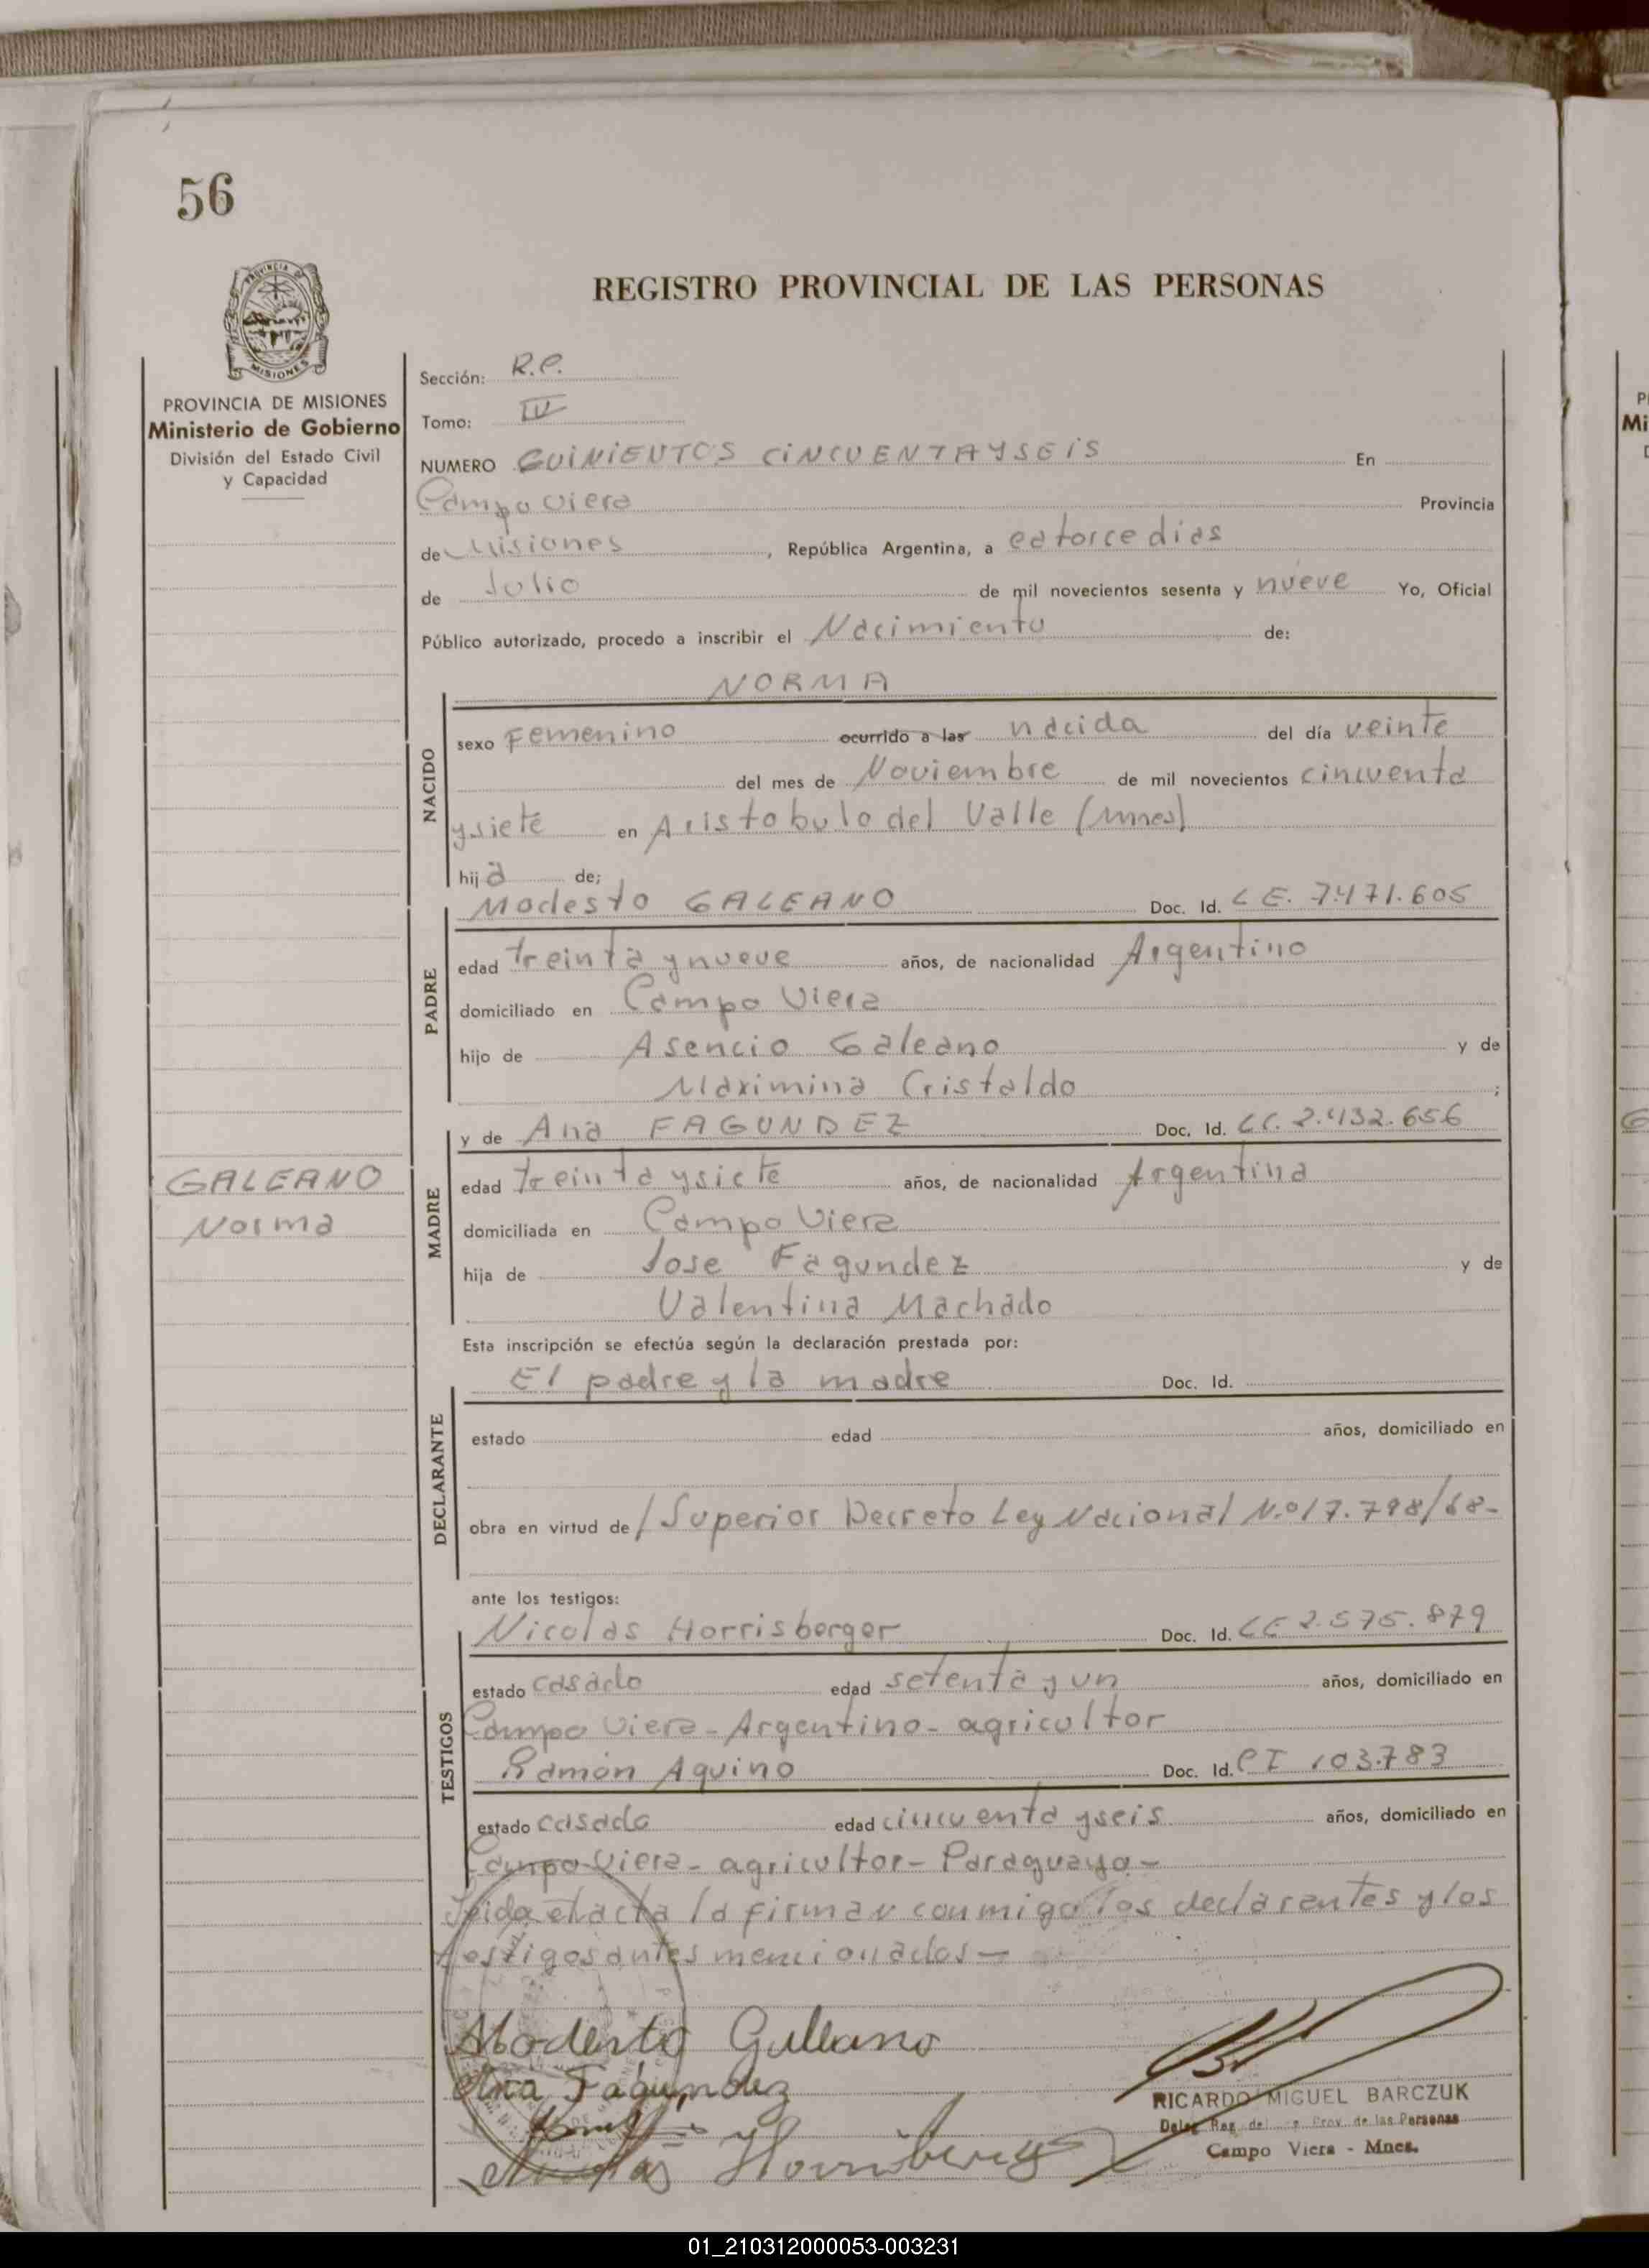 56
PROVINCIA DE MISIONES
Ministerio de Gobierno
División del Estado Civil
y Capacidad
GALEANO
Norma
REGISTRO PROVINCIAL DE LAS PERSONAS
Sección: R.P.
Tomo: IV
NUMERO QUINIENTOS CINCUENTAYSEIS En
Campo Viera Provincia
de Misiones, República Argentina, a catorce dias
de Julio de mil novecientos sesenta y nueve Yo, Oficial
Público autorizado, procedo a inscribir el Nacimiento de:
NORMA
NACIDO
sexo Femenino ocurrido a las nacida del día veinte
del mes de Noviembre de mil novecientos cincuenta
y siete en Aristobulo del Valle (Mnes)
hija de;
Modesto GALEANO Doc. Id. L E. 7.471.605
PADRE
edad treinta y nueve años, de nacionalidad Argentino
domiciliado en Campo Viera
hijo de Asencio Galeano y de
Maximina Cristaldo ;
y de Ana FAGUNDEZ Doc. Id. L.C. 2.432.656
MADRE
edad treinta y siete años, de nacionalidad Argentina
domiciliada en Campo Viera
hija de Jose Fagundez y de
Valentina Machado
Esta inscripción se efectúa según la declaración prestada por:
El padre y la madre Doc. Id.
DECLARANTE
estado edad años, domiciliado en
obra en virtud de / Superior Decreto Ley Nacional N.º 17.798/68-
ante los testigos:
Nicolas Horrisberger Doc. Id. L E 2.575.879
TESTIGOS
estado casado edad setenta y un años, domiciliado en
Campo Viera - Argentino - agricultor
Ramón Aquino Doc. Id. C I 103.783
estado casado edad cincuenta y seis años, domiciliado en
Campo Viera - agricultor - Paraguayo -
Leida el acta la firman conmigo los declarantes y los
testigos antes mencionados -
Modesto Galeano
Ana Fagundez
RICARDO MIGUEL BARCZUK
Prov. de las Personas
Campo Viera - Mnes.
01_210312000053-003231